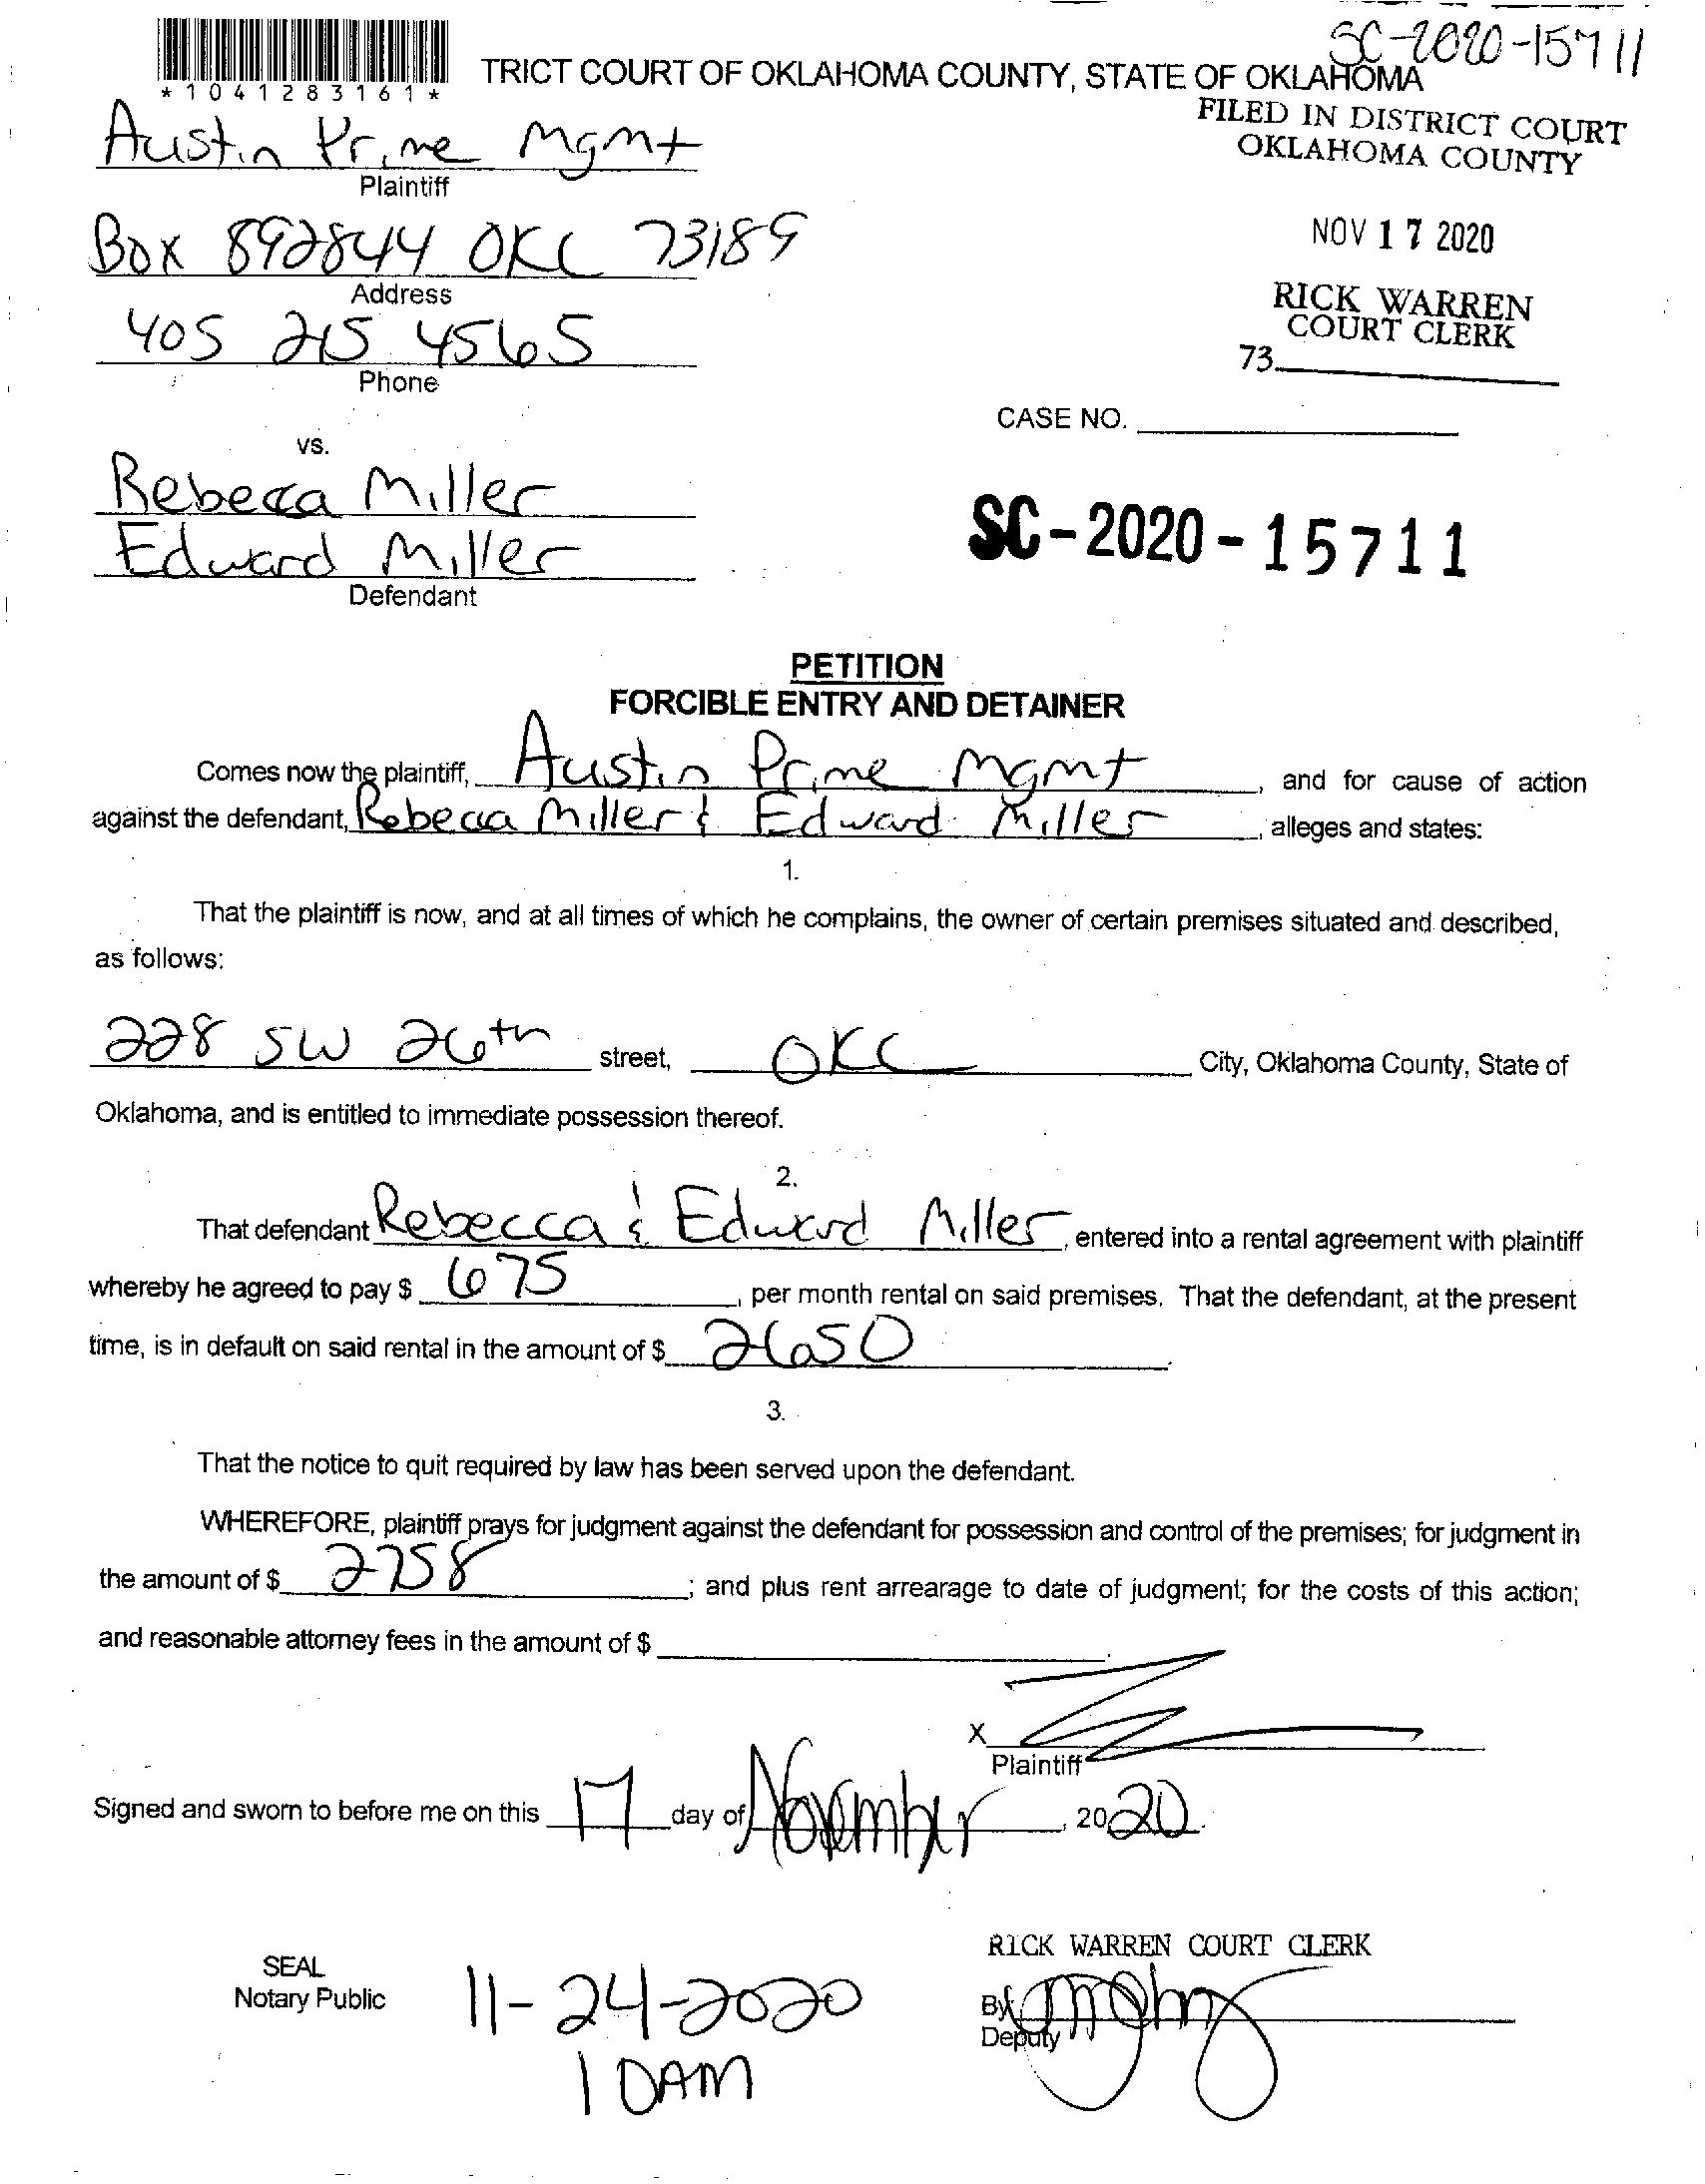 SC-2020-15711
*1041283161*
TRICT COURT OF OKLAHOMA COUNTY, STATE OF OKLAHOMA
FILED IN DISTRICT COURT
OKLAHOMA COUNTY
Austin Prime Mgmt
Plaintiff
Box 892844 OKC 73189
Address
NOV 17 2020
RICK WARREN
COURT CLERK
405 215 4565
Phone
73
CASE NO.
vs.
Rebecca Miller
Edward Miller
Defendant
SC-2020-15711
PETITION
FORCIBLE ENTRY AND DETAINER
Comes now the plaintiff, Austin Prime Mgmt, and for cause of action
against the defendant, Rebecca Miller & Edward Miller, alleges and states:
1.
That the plaintiff is now, and at all times of which he complains, the owner of certain premises situated and described,
as follows:
228 SW 26th street, OKC City, Oklahoma County, State of
Oklahoma, and is entitled to immediate possession thereof.
2.
That defendant Rebecca & Edward Miller, entered into a rental agreement with plaintiff
whereby he agreed to pay $ 675, per month rental on said premises. That the defendant, at the present
time, is in default on said rental in the amount of $ 2650.
3.
That the notice to quit required by law has been served upon the defendant.
WHEREFORE, plaintiff prays for judgment against the defendant for possession and control of the premises; for judgment in
the amount of $ 2758; and plus rent arrearage to date of judgment; for the costs of this action;
and reasonable attorney fees in the amount of $ .
X
Plaintiff
Signed and sworn to before me on this 17 day of November, 2020.
SEAL
Notary Public
11-24-2020
10AM
RICK WARREN COURT CLERK
By
Deputy